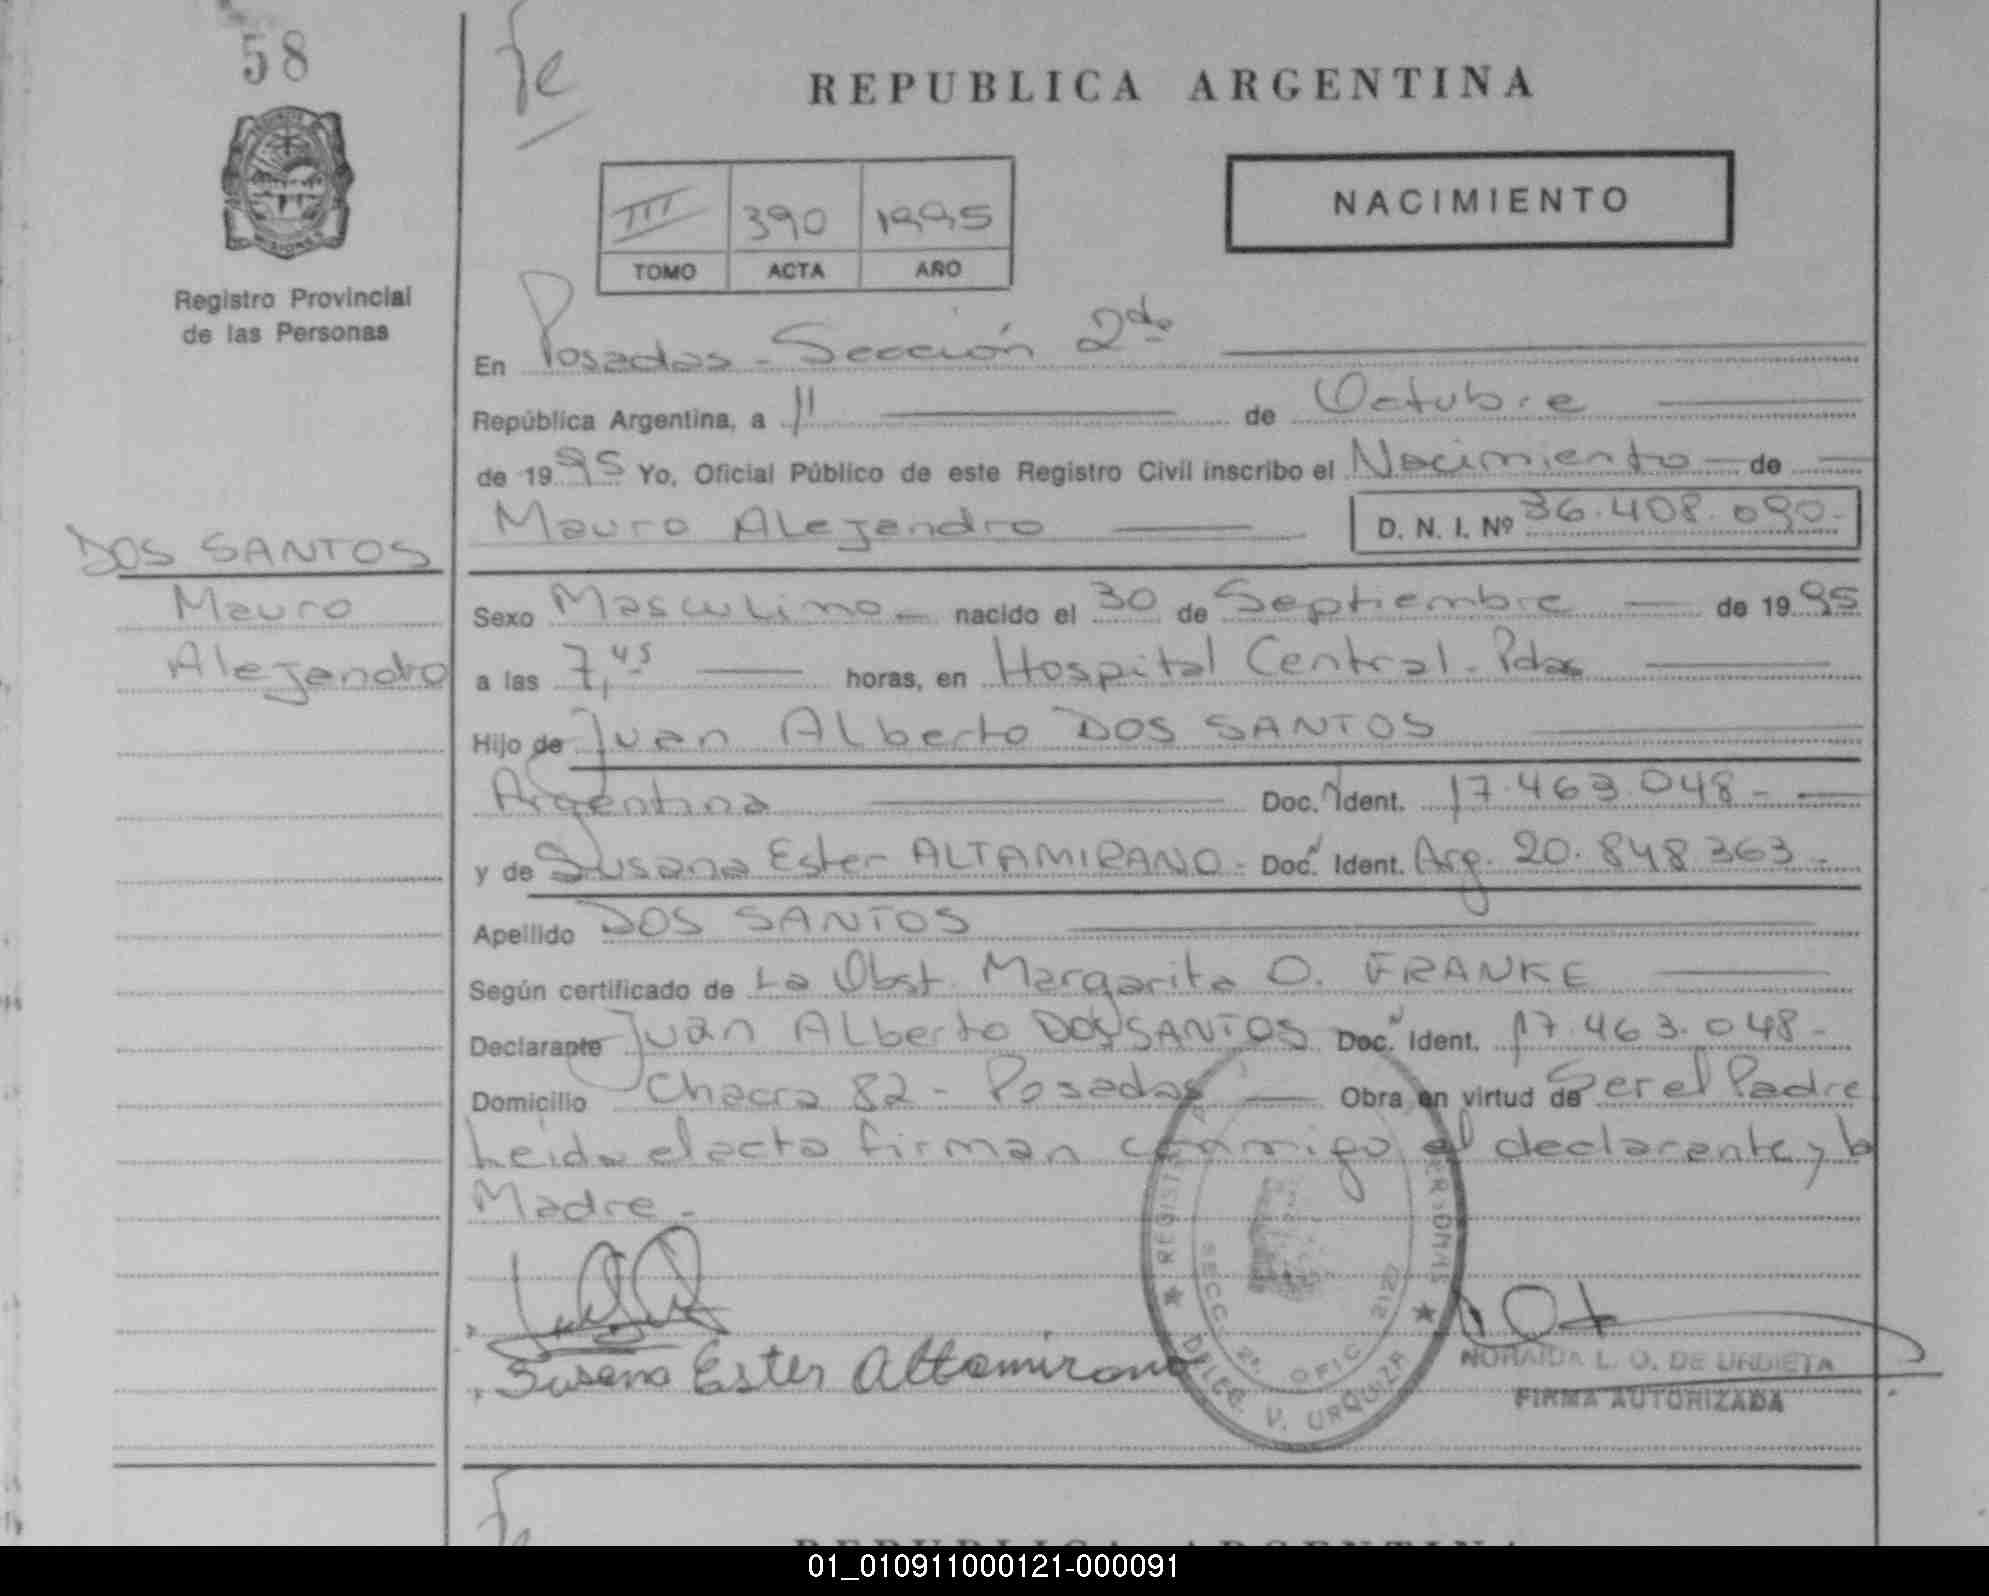 58
fe
REPUBLICA ARGENTINA
NACIMIENTO
III 390 1995
TOMO ACTA AÑO
Registro Provincial
de las Personas
En Posadas - Sección 2da
República Argentina, a 11 de Octubre
de 1995 Yo, Oficial Público de este Registro Civil inscribo el Nacimiento de
Mauro Alejandro D. N. I. Nº 36.408.090-
DOS SANTOS
Mauro
Alejandro
Sexo Masculino nacido el 30 de Septiembre de 1995
a las 7,45 horas, en Hospital Central - Pdas
Hijo de Juan Alberto DOS SANTOS
Argentina Doc. Ident. 17.463.048-
y de Susana Ester ALTAMIRANO - Doc. Ident. Arg. 20.848.363-
Apellido DOS SANTOS
Según certificado de La Obst. Margarita O. FRANKE
Declarante Juan Alberto DOS SANTOS Doc. Ident. 17.463.048-
Domicilio Chacra 82 - Posadas Obra en virtud de Ser el Padre
Leída el acta firman conmigo el declarante y la
Madre -
Susana Ester Altamirano
SECC. 2ª OFIC. 2120
DELEG. V. URQUIZA
NORAIDA L. O. DE URDIETA
FIRMA AUTORIZADA
fe
REPUBLICA ARGENTINA
01_010911000121-000091